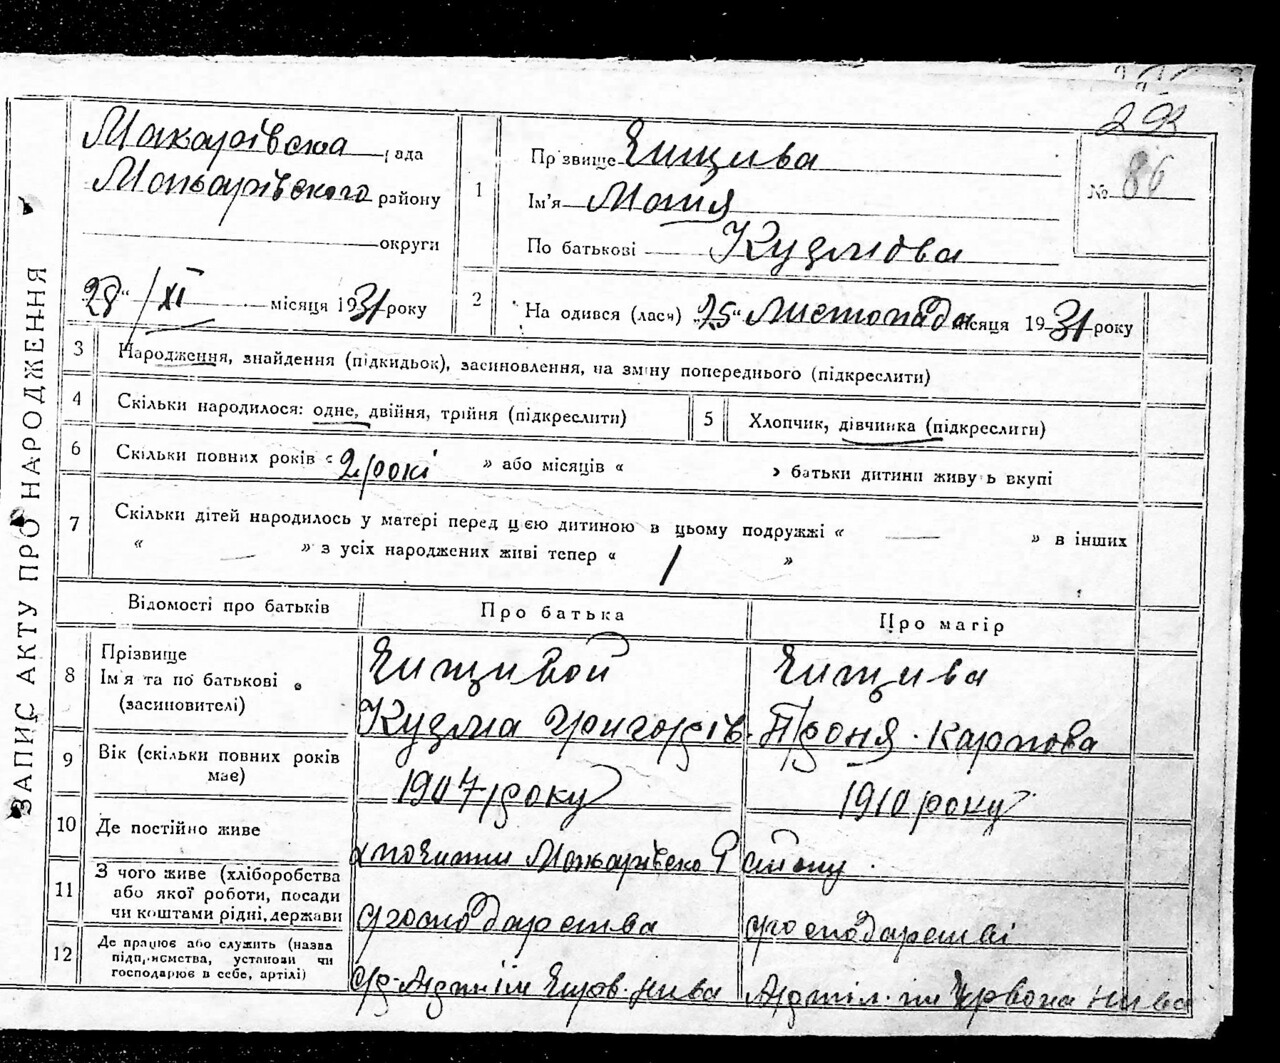 293
Макарівська рада
Макарівського району
округи
"28" / XI місяця 1931 року
ЗАПИС АКТУ ПРО НАРОДЖЕННЯ
1
Прізвище Чищива
Ім'я Мотя
По батькові Кузмова
№ 86
2
Народився (лася) "25" Листопада місяця 1931 року
3
Народження, знайдення (підкидьок), засиновлення, на зміну попереднього (підкреслити)
4
Скільки народилося: одне, двійня, трійня (підкреслити)
5
Хлопчик, дівчинка (підкреслити)
6
Скільки повних років « 2 рокі » або місяців « » батьки дитини живуть вкупі
7
Скільки дітей народилось у матері перед цією дитиною в цьому подружжі « — » в інших
« — » з усіх народжених живі тепер « / »
Відомості про батьків
Про батька
Про матір
8
Прізвище
Ім'я та по батькові
(засиновителі)
Чищивой
Кузма Григорів.
Чищива
Проня. Карпова
9
Вік (скільки повних років
має)
1907 року
1910 року
10
Де постійно живе
Макарівсько Району
11
З чого живе (хліборобства
або якої роботи, посади
чи коштами рідні, держави
господарства
господарстві
12
Де працює або служить (назва
підприємства, установи чи
господарює в себе, артілі)
Черв. нива
Артіл. ім Червона Нива